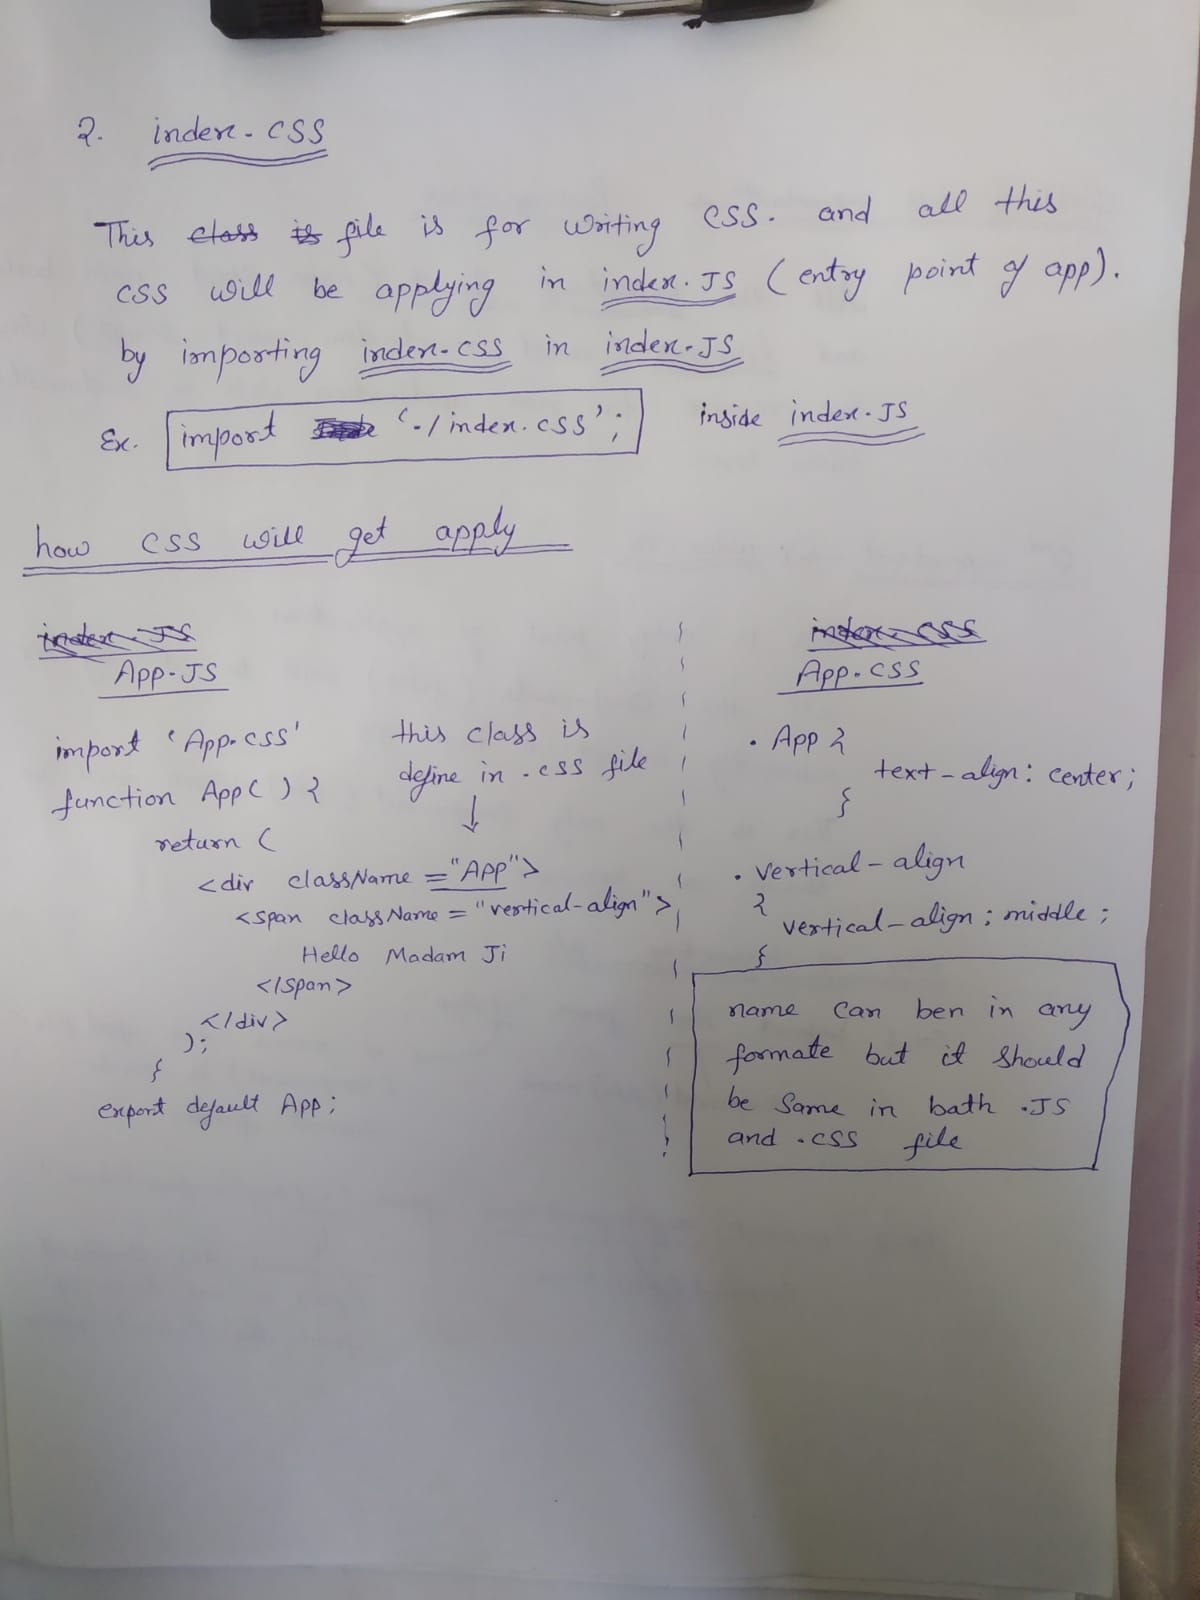 2. index.CSS
This class is file is for writing CSS. and all this
CSS will be applying in index.JS (entry point of app).
by importing index.css in index.JS
Ex. import './index.css'; inside index.JS
how CSS will get apply
index.JS
App.JS
import 'App.css'
function App() {
this class is
define in .css file
return (
<div className="App">
<span className="vertical-align">
Hello Madam Ji
</span>
</div>
);
}
export default App;
index.css
App.css
.App {
text-align: center;
}
.vertical-align
{
vertical-align: middle;
}
name can ben in any
formate but it should
be same in bath .JS
and .css file